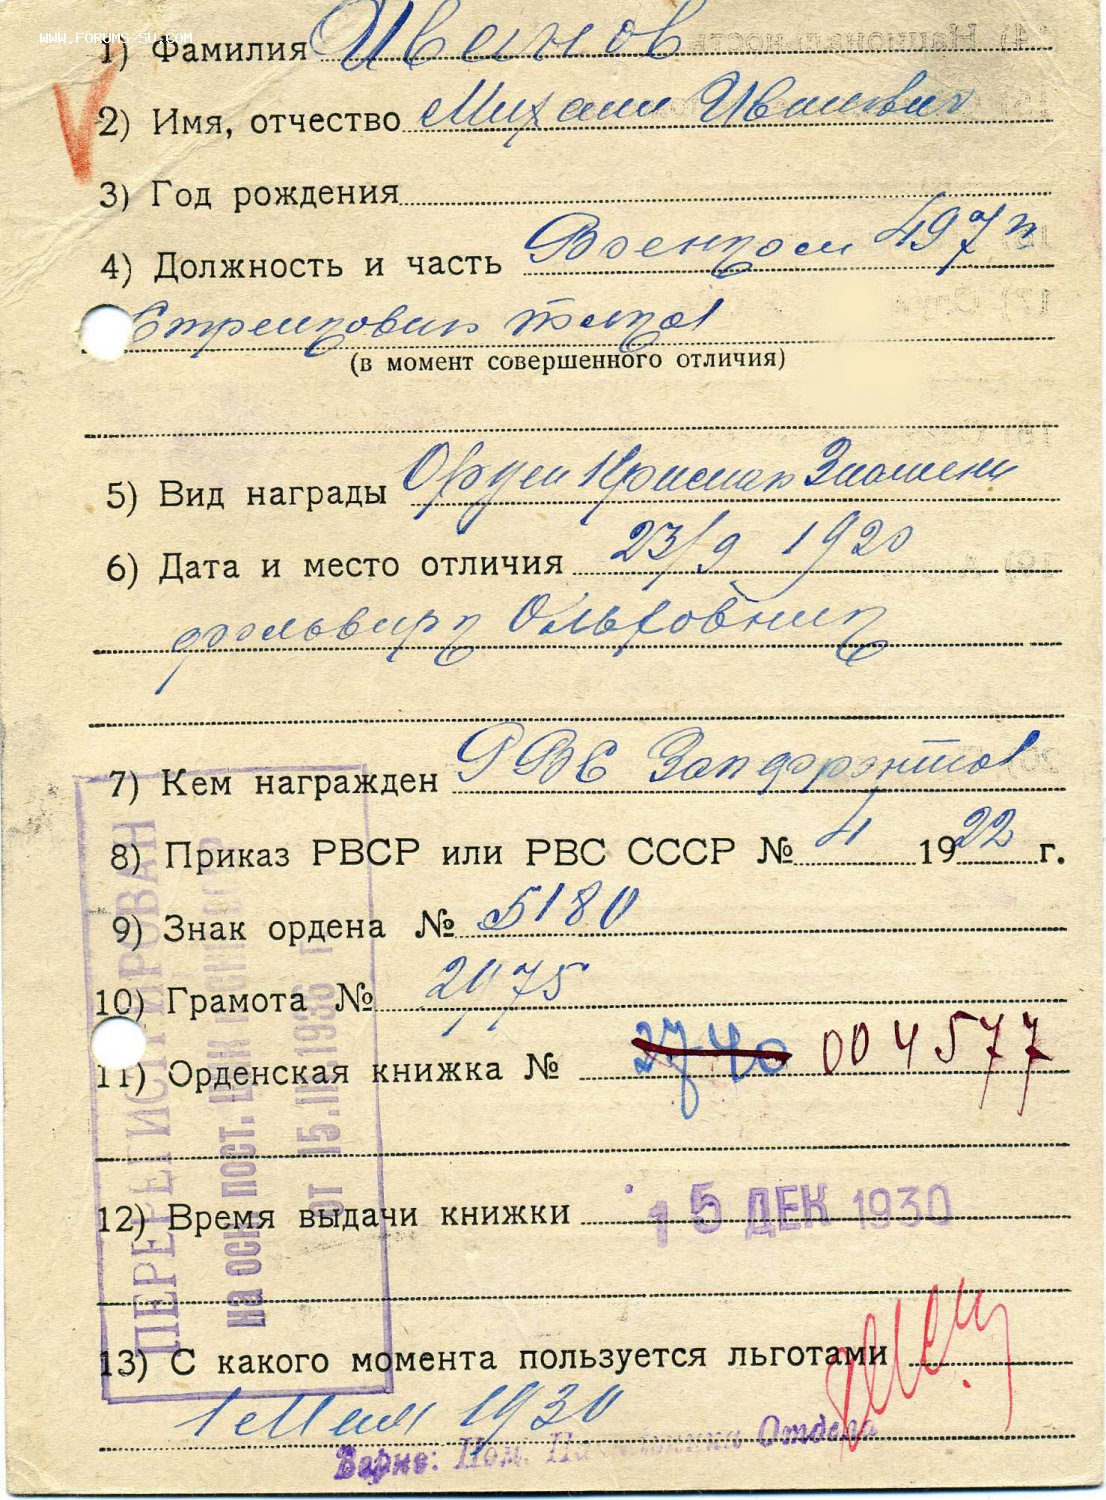 WWW.FORUMS-SU.COM
1) Фамилия Иванов
2) Имя, отчество Михаил Иванович
3) Год рождения
4) Должность и часть Военком 497 п
Стрелковый полка
(в момент совершенного отличия)
5) Вид награды Орден Красного Знамени
6) Дата и место отличия 23/9 1920
фольварк Ольховник
7) Кем награжден РВС Запфронта
8) Приказ РВСР или РВС СССР № 4 1922 г.
9) Знак ордена № 5180
10) Грамота № 2975
11) Орденская книжка № 2740 004577
12) Время выдачи книжки 15 ДЕК 1930
13) С какого момента пользуется льготами
1 Мая 1930
Верно: Пом. Начальника Отдела
ПЕРЕРЕГИСТРИРОВАН
на осн. пост. ЦИК и СНК СССР